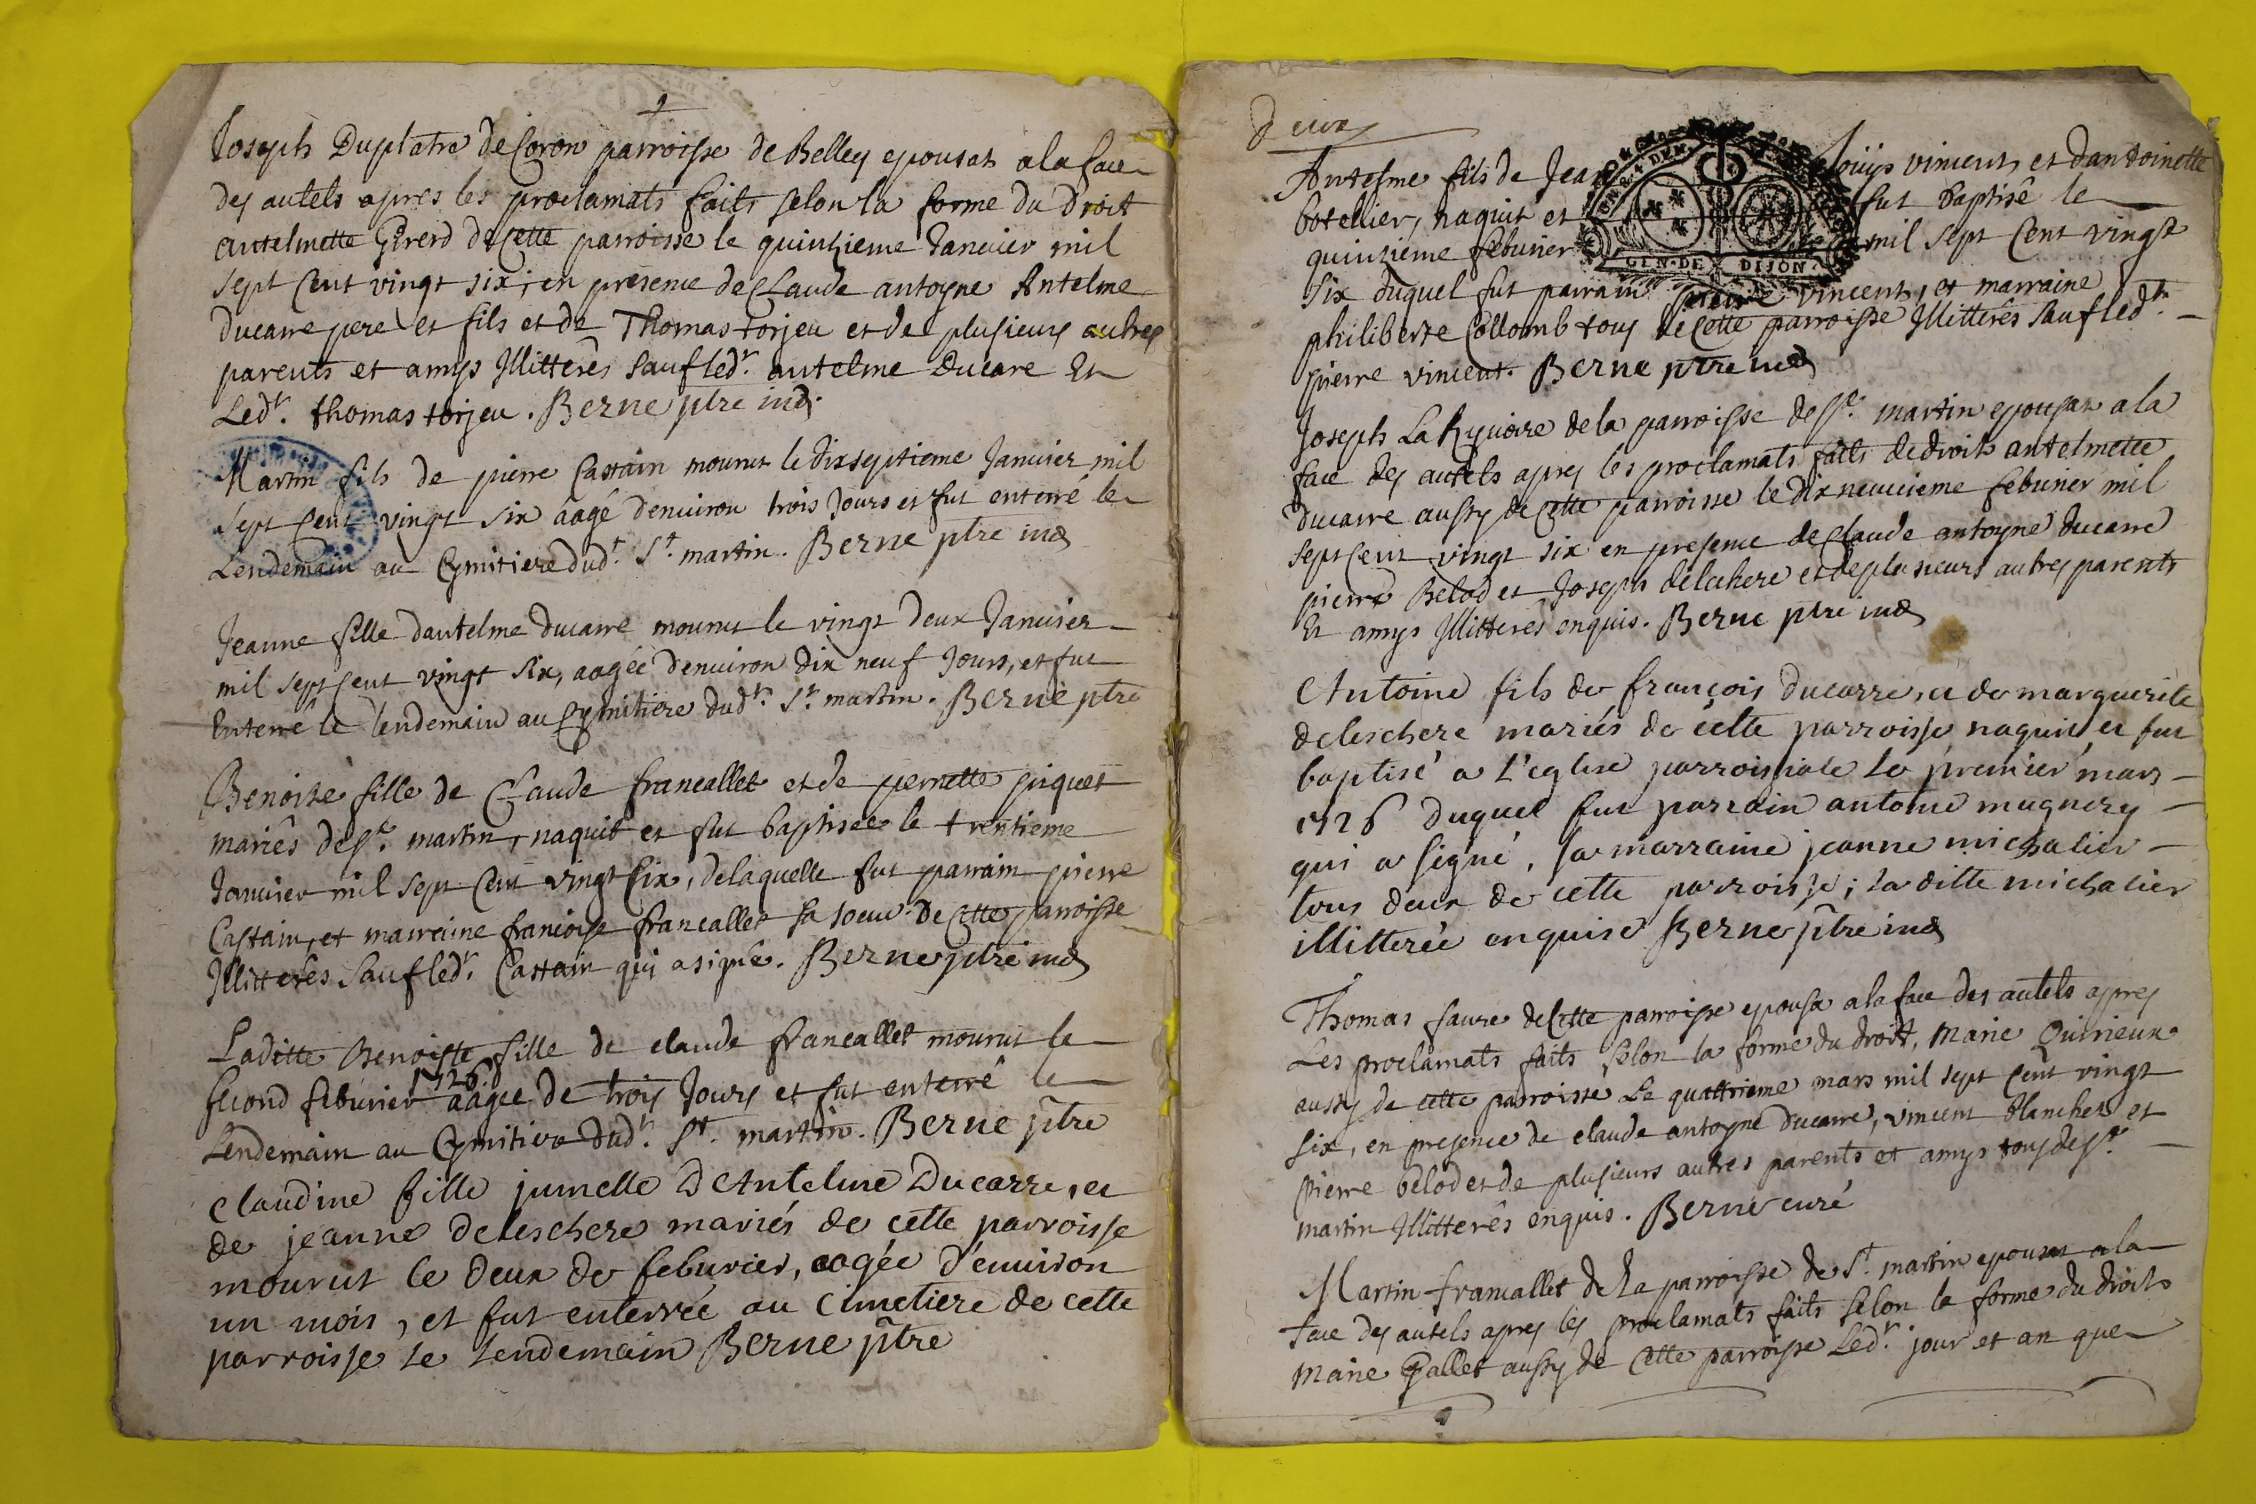 Joseph Duplatre de Coron parroisse de Belley epousat a la face
des autels apres les proclamats faits selon la forme du droit
antelmette Girerd de Cette parroisse le quinzieme Janvier mil
sept Cent vingt six, en presence de Claude antoyne Antelme
ducarre pere et fils et de Thomas torjeu et de plusieurs autres
parents et amys Jllitterés sauf led.r antelme Ducare Et
Led.r thomas torjeu. Berne ptre ind.
Martin fils de pierre Castain mourut le dixseptieme Januier mil
sept Cent vingt six âagé d'enuiron trois Jours et fut enterré le
Lendemain au Cymitiere dud.t S.t martin. Berne ptre ind
Jeanne fille dantelme ducarre mourut le vingt deux Januier
mil sept Cent vingt six, aagée d'enuiron dix neuf Jours, et fut
Enterré le lendemain au Cymitiere dud.r S.t martin. Berne ptre
Benoiste fille de Claude francallet et de pernette piquet
mariés de S.t martin, naquit et fut baptisée le trentieme
Januier mil sept Cent vingt six, de laquelle fut parrain pierre
Castain, et marraine francoise francallet sa soeur de Cette parroisse
Jllitterés sauf led.r Castain qui a signé. Berne ptre ind
Laditte Benoiste fille de claude francallet mourut le
1726
second feburier aagée de trois Jours et fut enterré le
Lendemain au Cymitiere dud.r S.t martin. Berne ptre
Claudine fille jumelle D'Antelme Ducarre, et
de jeanne deleschere mariés de cette parroisse
mourut le deux de feburier, aagée d'enuiron
un mois, et fut enterrée au cimetiere de cette
parroisse le lendemain Berne ptre
deux
Antelme fils de Jean Louijs vincent, et dantoinette
botellier, naquit et fut baptisé le
quinzieme feburier mil sept Cent vingt
GEN. DE DIJON
six duquel fut parrain pierre vincent, et marraine
philiberte Collomb tous de Cette parroisse Jllitterés sauf led.t
pierre vincent. Berne ptre ind
Joseph La Ryuoire de la parroisse de S.t martin epousat a la
face des autels apres les proclamats faits de droits antelmette
Ducarre aussy de Cette parroisse le dix neuuieme feburier mil
sept Cent vingt six en presence de Claude antoyne ducarre
pierre Belod et Joseph delechere et de plusieurs autres parents
Et amys Jllitterés enquis. Berne ptre ind
Antoine fils de françois ducarre, et de marguerite
deleschere mariés de cette parroisse naquit et fut
baptisé a L'eglise parroissiale le premier mars
1726 duquel fut parrain antoine mugnery
qui a signé, sa marraine jeanne michalier
tous deux de cette parroisse; la ditte michalier
illitterée enquise Berne ptre ind
Thomas faure de Cette parroisse epousa a la face des autels apres
Les proclamats faits selon la forme du droit, Marie Quirieux
aussy de cette parroisse Le quattrieme mars mil sept Cent vingt
six, en presence de claude antoyne ducarre, vincent blanchet et
pierre belod et de plusieurs autres parents et amys tous de S.t
martin Jllitterés enquis. Berne curé
Martin francallet de La parroisse de S.t martin epousat a la
face des autels apres les proclamats faits selon la forme du droits
Marie Gallet aussy de Cette parroisse Led.r jour et an que